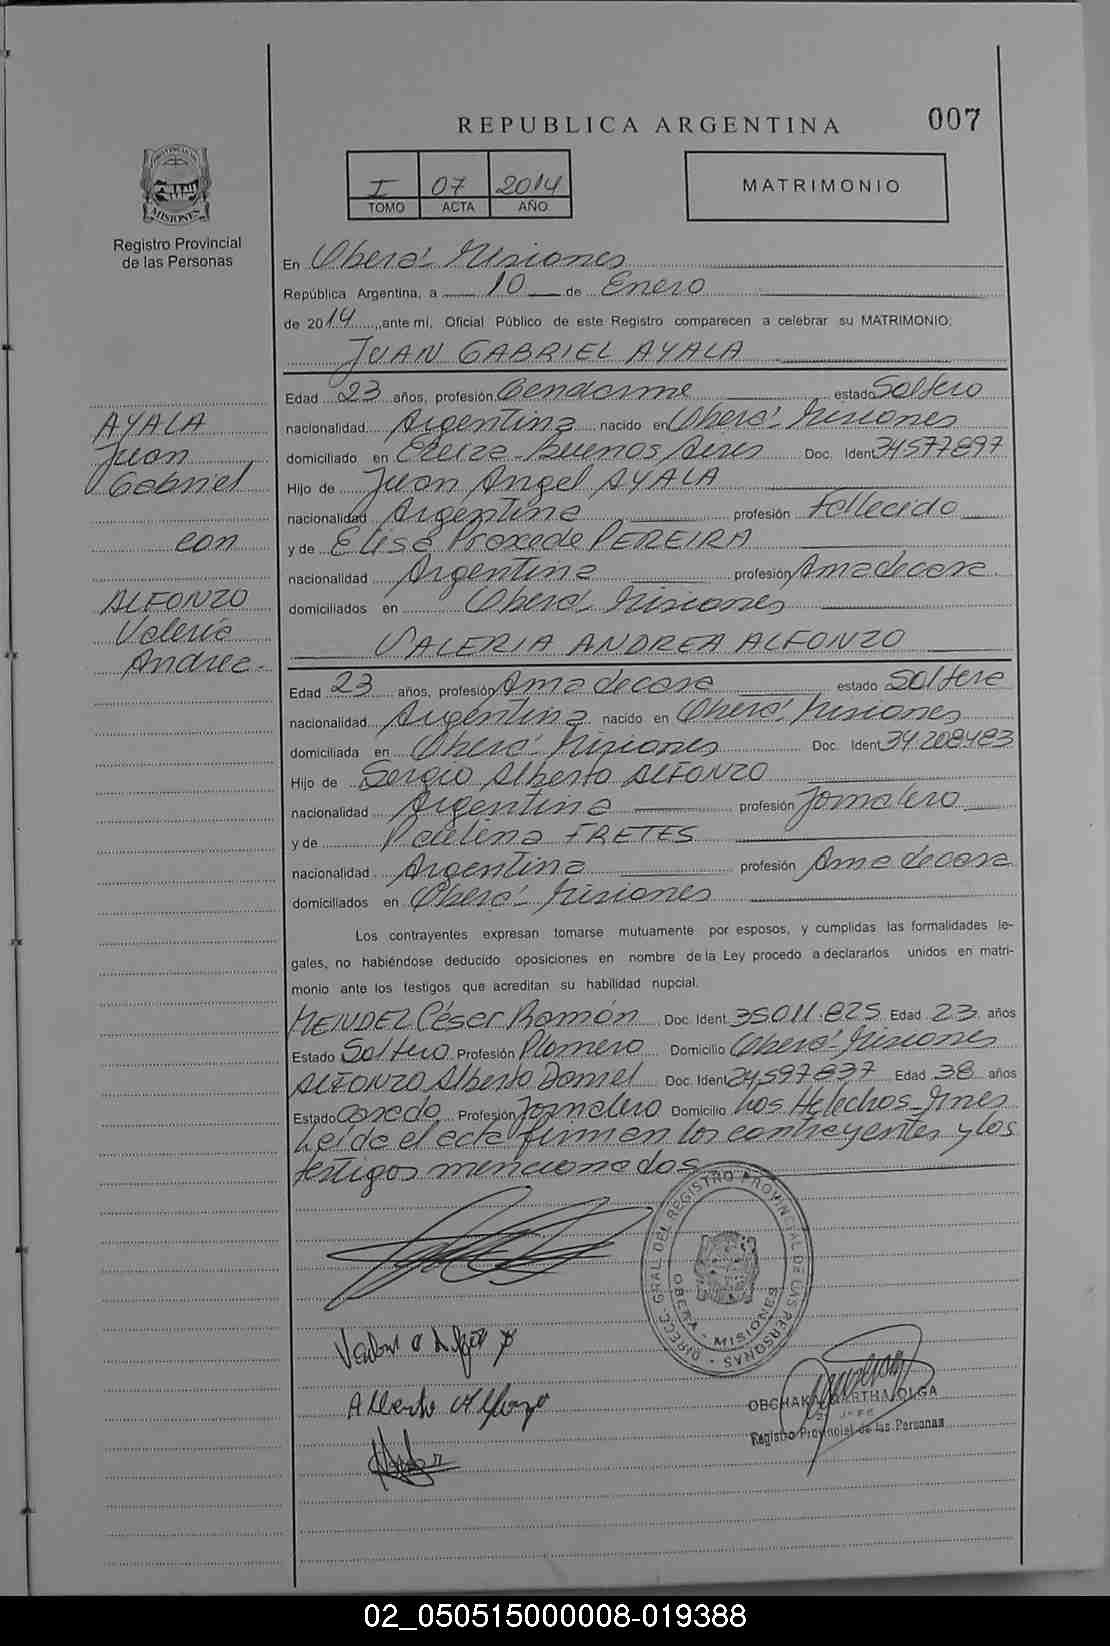 REPUBLICA ARGENTINA
007
PROVINCIA DE
MISIONES
Registro Provincial
de las Personas
I 07 2014
TOMO ACTA AÑO
MATRIMONIO
En Oberá Misiones
República Argentina, a 10 de Enero
de 2014, ante mi, Oficial Público de este Registro comparecen a celebrar su MATRIMONIO:
JUAN GABRIEL AYALA
Edad 23 años, profesión Gendarme estado Soltero
nacionalidad Argentina nacido en Oberá Misiones
domiciliado en Ezeiza - Buenos Aires Doc. Ident 34577897
Hijo de Juan Angel AYALA
nacionalidad Argentina profesión Fallecido
y de Elisa Praxede PEREIRA
nacionalidad Argentina profesión Ama de casa
domiciliados en Oberá Misiones
AYALA
Juan
Gabriel
con
ALFONZO
Valeria
Andrea.
VALERIA ANDREA ALFONZO
Edad 23 años, profesión Ama de casa estado Soltera
nacionalidad Argentina nacido en Oberá Misiones
domiciliada en Oberá Misiones Doc. Ident 34208483
Hijo de Sergio Alberto ALFONZO
nacionalidad Argentina profesión Jornalero
y de Paulina FRETES
nacionalidad Argentina profesión Ama de casa
domiciliados en Oberá Misiones
Los contrayentes expresan tomarse mutuamente por esposos, y cumplidas las formalidades le-
gales, no habiéndose deducido oposiciones en nombre de la Ley procedo a declararlos unidos en matri-
monio ante los testigos que acreditan su habilidad nupcial.
MENDEZ César Ramón Doc. Ident 35011.825 Edad 23 años
Estado Soltero Profesión Plomero Domicilio Oberá Misiones
ALFONZO Alberto Daniel Doc. Ident 24597837 Edad 38 años
Estado Casado Profesión Jornalero Domicilio Los Helechos - Mnes
Leída el acta firman los contrayentes y los
testigos mencionados
DIRECC. GRAL. DEL REGISTRO PROVINCIAL DE LAS PERSONAS
OBERA - MISIONES
Alberto Alfonzo
MARTHA OLGA
Registro Provincial de las Personas
02_050515000008-019388